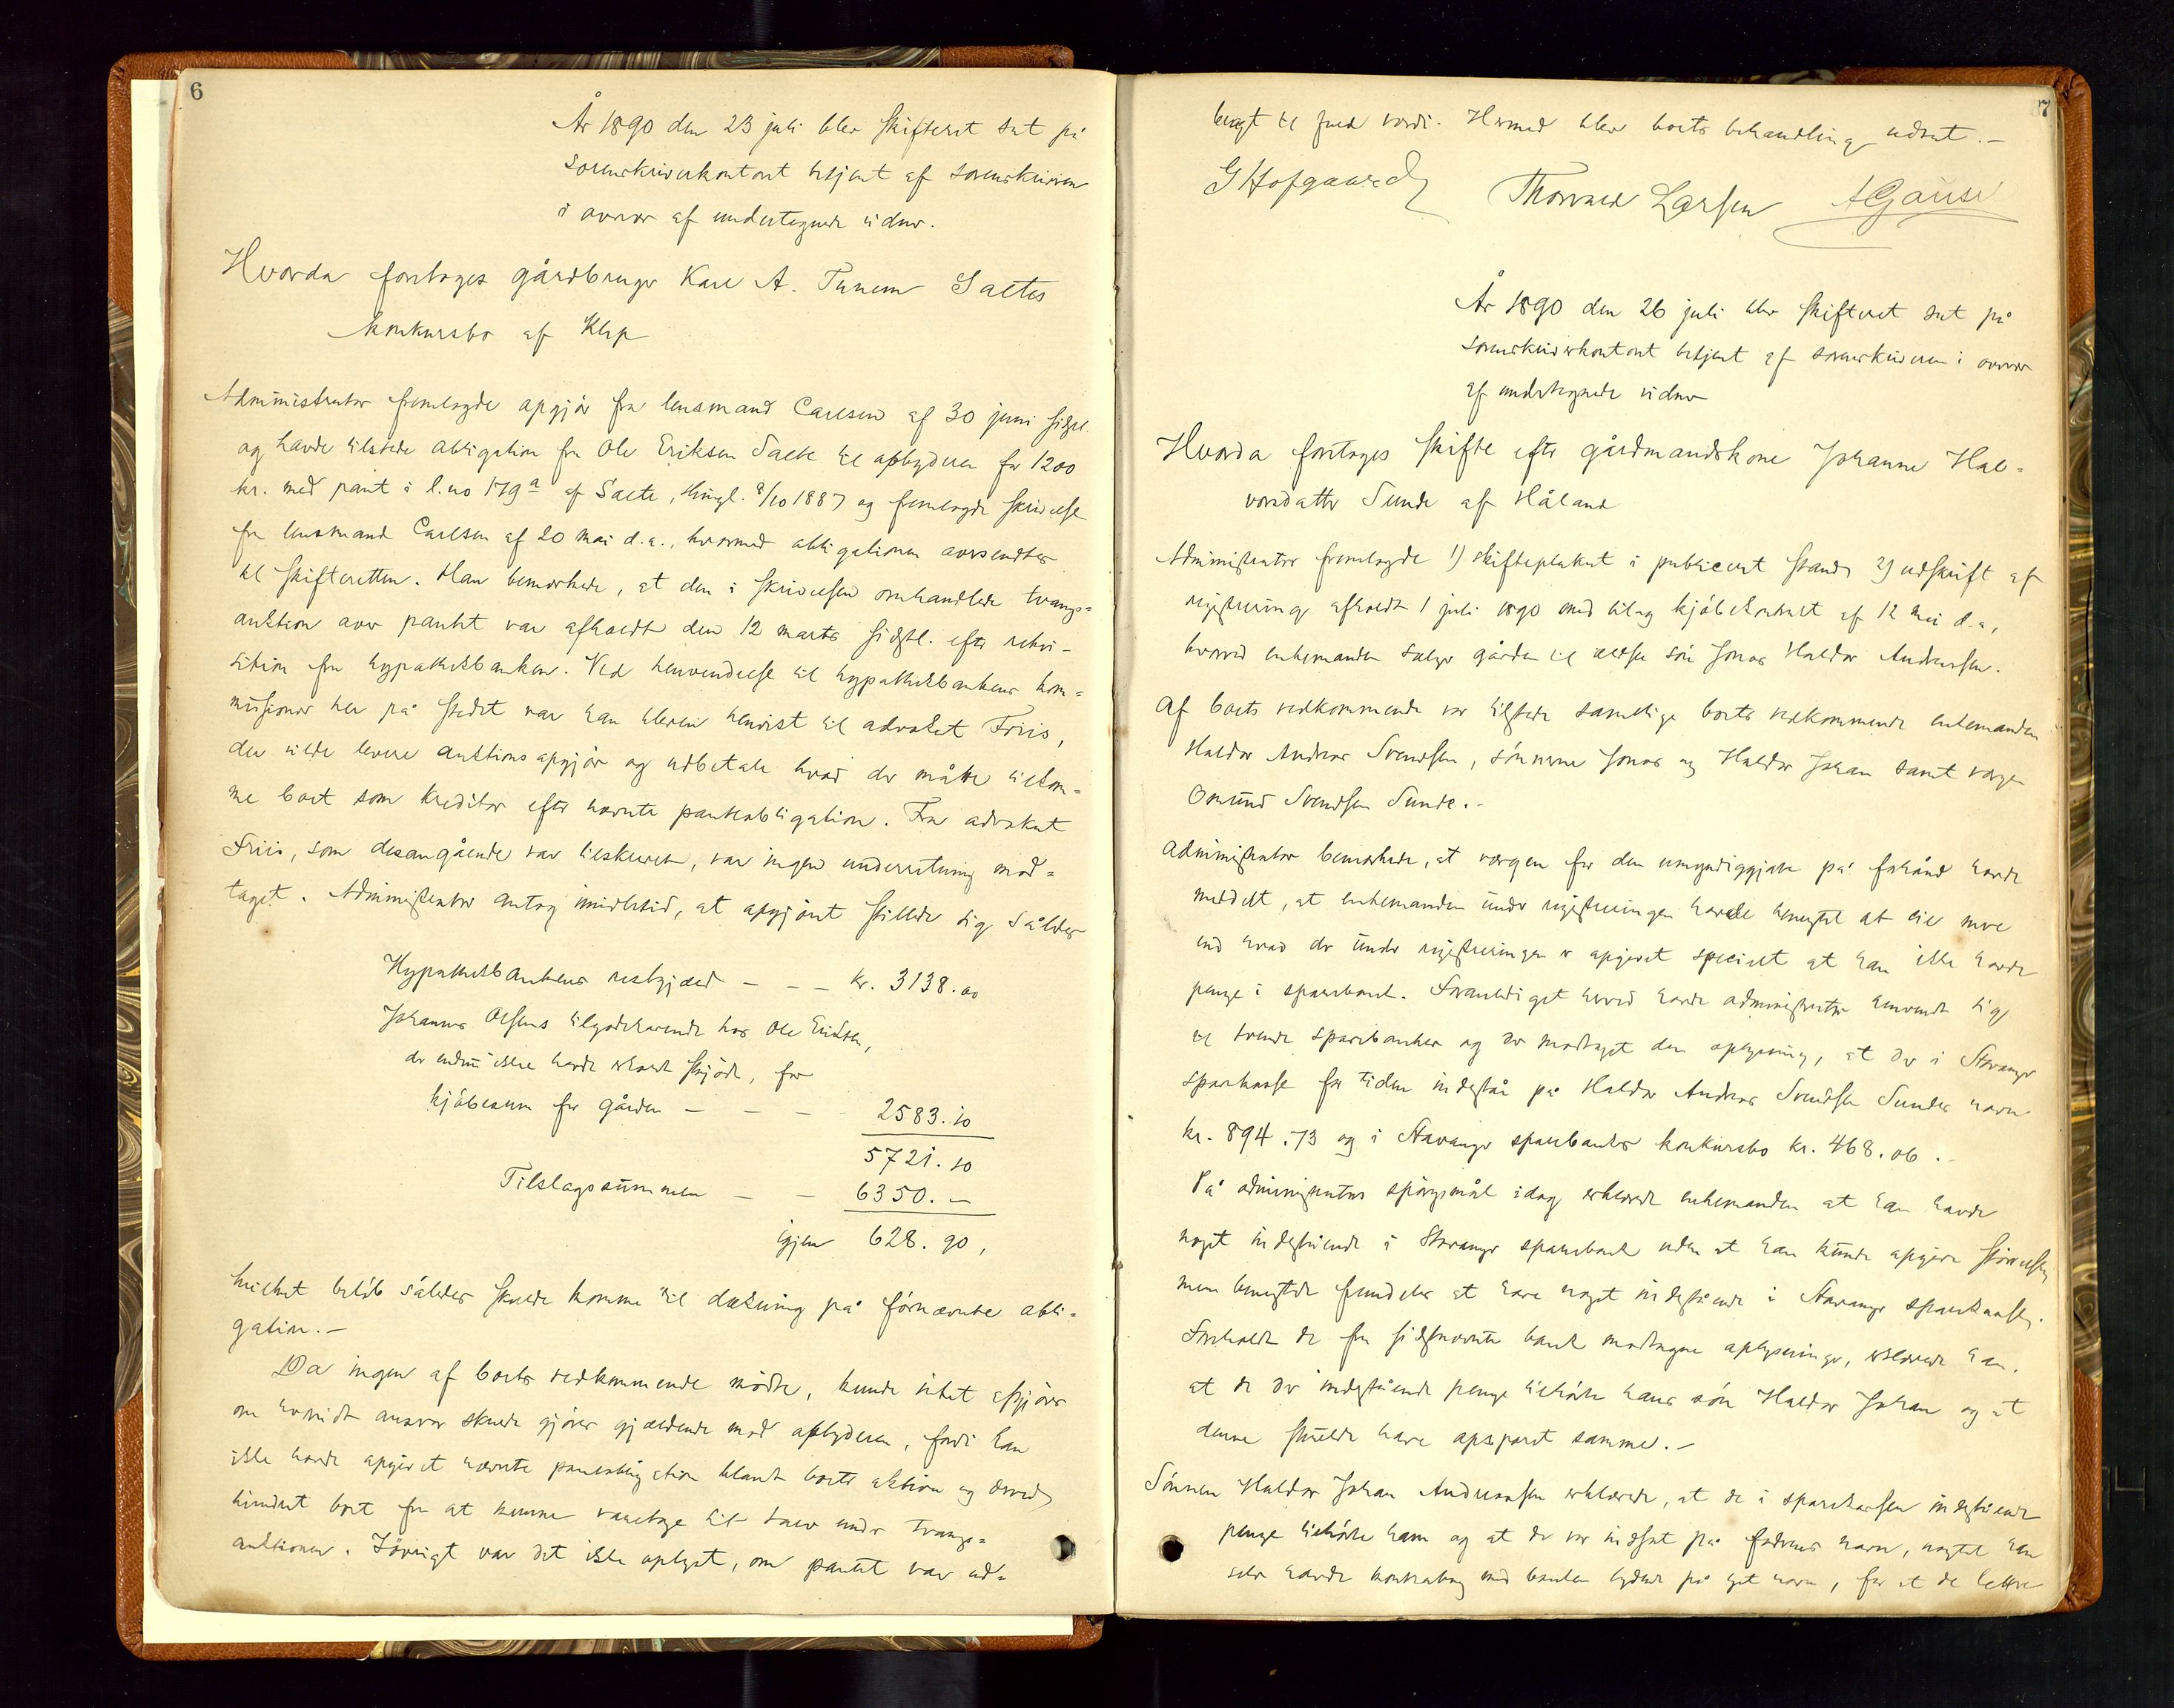 6
År 1890 den 23 juli blev skifteret sat på
sorenskriverkontoret betjent af sorenskriveren
i overvær af undertegnede vidner.
Hvorda foretoges gårdbruger Karl A. Tunem Saltes
konkursbo af Klep
Administrator fremlagde opgjør fra lensmand Carlsen af 30 juni sidstl.
og havde tilstede obligation fra Ole Eriksen Salte til opbyderen for 1200
kr. med pant i l.no 179a af Salte, thingl. 8/10 1887 og fremlagde skrivelse
fra lensmand Carlsen af 20 mai d.a., hvormed obligationen oversendtes
til skifteretten. Han bemærkede, at den i skrivelsen omhandlede tvangs=
auktion over pantet var afholdt den 12 marts sidstl. efter rekvi-
sition fra hypothekbanken. Ved henvendelse til hypothekbankens kom=
missionær her på stedet var han bleven henvist til advokat Friis,
der vilde levere auktionsopgjør og udbetale hvad der måtte tilkom=
me boet som kreditor efter nævnte panteobligation. Fra advokat
Friis, som desangående var tilskrevet, var ingen underretning mod=
taget. Administrator antog imidlertid, at opgjøret stillede sig således
Hypothekbankens restgjæld - - - kr. 3138.00
Johannes Olsens tilgodehavende hos Ole Eriksen,
der endnu ikke havde erholdt skjøde, for
kjøbesum for gården - - - 2583.10
5721.10
Tilslagssummen - - 6350.-
igjen 628.90,
hvilket beløb således skulde komme til dækning på førnævnte obli=
gation.-
Da ingen af boets vedkommende mødte, kunde intet afgjøres
om hvorvidt ansvar skulde gjøres gjældende mod opbyderen, fordi han
ikke havde opgivet nævnte panteobligation blandt boets aktiva og derved
hindret boet fra at kunne varetage sit tarv under tvangs=
auktionen. Iøvrigt var det ikke oplyst, om pantet var ud=
7
bragt til fuld værdi. Hermed blev boets behandling udsat.-
G Hofgaard Thorvald Larsen A Gause
År 1890 den 26 juli blev skifteret sat på
sorenskriverkontoret betjent af sorenskriveren i overvær
af undertegnede vidner
Hvorda foretoges skifte efter gårdmandskone Johanne Hal=
vorsdatter Sunde af Håland
Administrator fremlagde 1) skifteplakat i publiceret stand, 2) udskrift af
registrering afholdt 1 juli 1890 med bilag kjøbekontrakt af 12 mai d.a.,
hvorved enkemanden sælger gården til ældste søn Jonas Haldor Andreassen.
Af boets vedkommende var tilstede samtlige boets vedkommende enkemanden
Haldor Andreas Svendsen, sønnerne Jonas og Haldor Johan samt værgen
Omund Svendsen Sunde.-
Administrator bemærkede, at værgen for den umyndiggjorte på forhånd havde
meddelt, at enkemanden under registreringen havde benegtet at eie mere
end hvad der under registreringen er opgivet specielt at han ikke havde
penge i sparebank. Foranlediget herved havde administrator henvendt sig
til tvende sparebanker og der modtaget den oplysning, at der i Stavanger
sparekasse for tiden indestår på Haldor Andreas Svendsen Sundes navn
kr. 894.73 og i Stavanger sparebanks konkursbo kr. 468.06.-
På administrators spørgsmål idag erklærede enkemanden at han havde
noget indestående i Stavanger sparebank uden at han kunde opgive størrelsen,
men benegtede fremdeles at have noget indestående i Stavanger sparekasse.
Foreholdt de fra sidstnævnte bank modtagne oplysninger, erklærede han,
at de der indestående penge tilhørte hans søn Haldor Johan og at
denne skulde have opsparet samme.-
Sønnen Haldor Johan Andreassen erklærede, at de i sparekassen indestående
penge tilhørte ham og at de var indsat på faderens navn, uagtet han
selv havde kontrabog med banken lydende på eget navn, for at de lettere